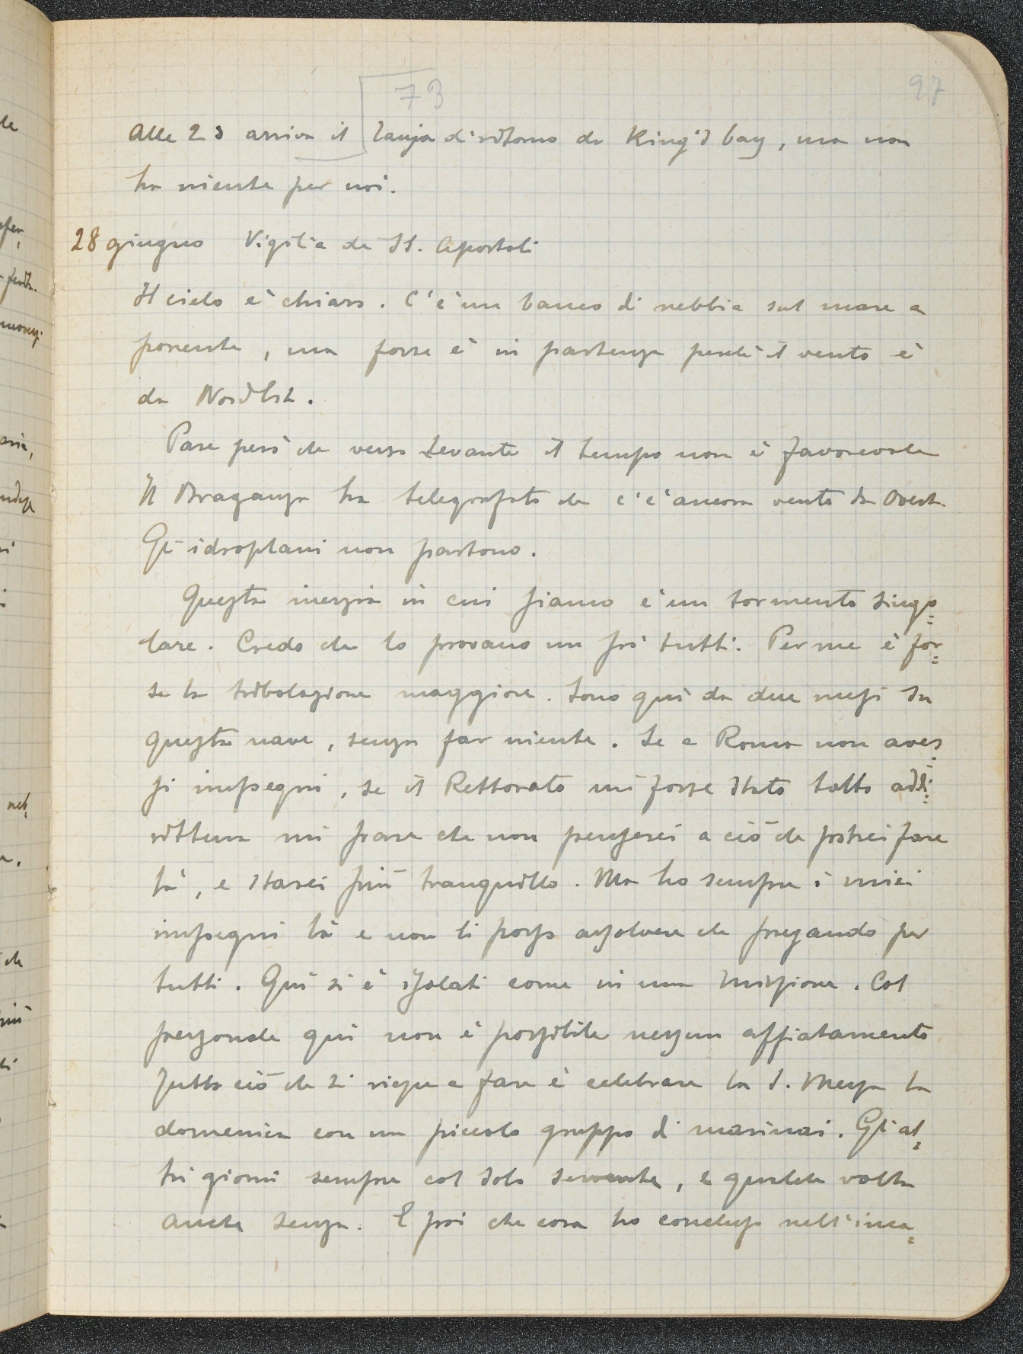 73
97
Alle 23 arriva il Tanja di ritorno da King's bay, ma non
ha niente per noi.
28 giugno Vigilia dei SS. Apostoli
Il cielo è chiaro. C'è un banco di nebbia sul mare a
ponente, ma forse è in partenza perchè il vento è
da NordEst.
Pare però che verso Levante il tempo non è favorevole
Il Braganza ha telegrafato che c'è ancora vento da Ovest.
Gli idroplani non partono.
Questa inerzia in cui siamo è un tormento singo=
lare. Credo che lo provano un pò tutti. Per me è for=
se la tribolazione maggiore. Sono qui da due mesi su
questa nave, senza far niente. Se a Roma non aves=
si impegni, se il Rettorato mi fosse stato tolto addi=
rittura mi pare che non penserei a ciò che potrei fare
là, e starei più tranquillo. Ma ho sempre i miei
impegni là e non li posso assolvere che pregando per
tutti. Qui si è isolati come in una Missione. Col
personale qui non è possibile nessun affiatamento
Tutto ciò che si riesce a fare è celebrare la S. Messa la
domenica con un piccolo gruppo di marinai. Gli al=
tri giorni sempre col solo servente, e qualche volta
anche senza. E poi che cosa ho concluso nell'inca=